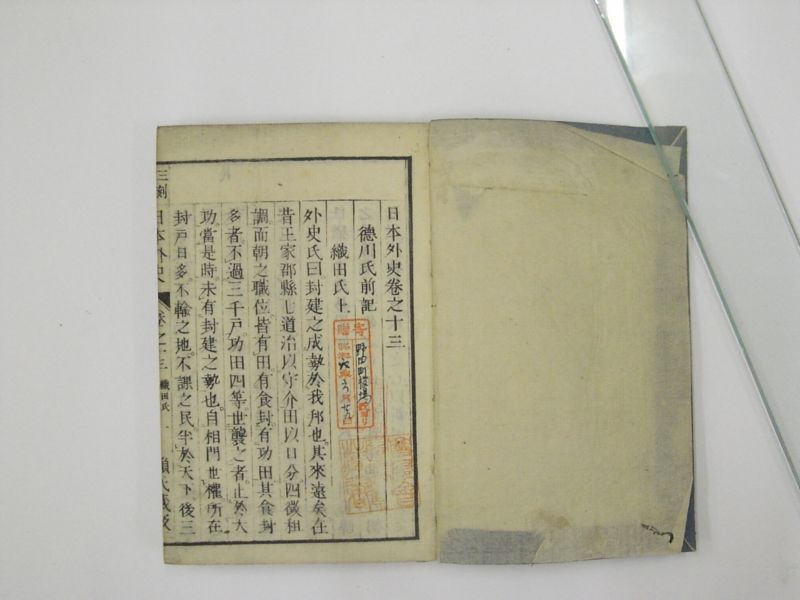 日本外史卷之十三
德川氏前記
織田氏上
外史氏曰封建之成勢於我邦也其來遠矣在
昔王家郡縣七道治以守介田以口分四徵租
調而朝之職位皆有田有食封有功田其食封
多者不過三千戶功田四等世襲之者止於大
功當是時未有封建之勢也自相門世權所在
封戶日多不輸之地不課之民半於天下後三
三刻 日本外史 卷之十三 織田氏 一
寄贈
野田町役場